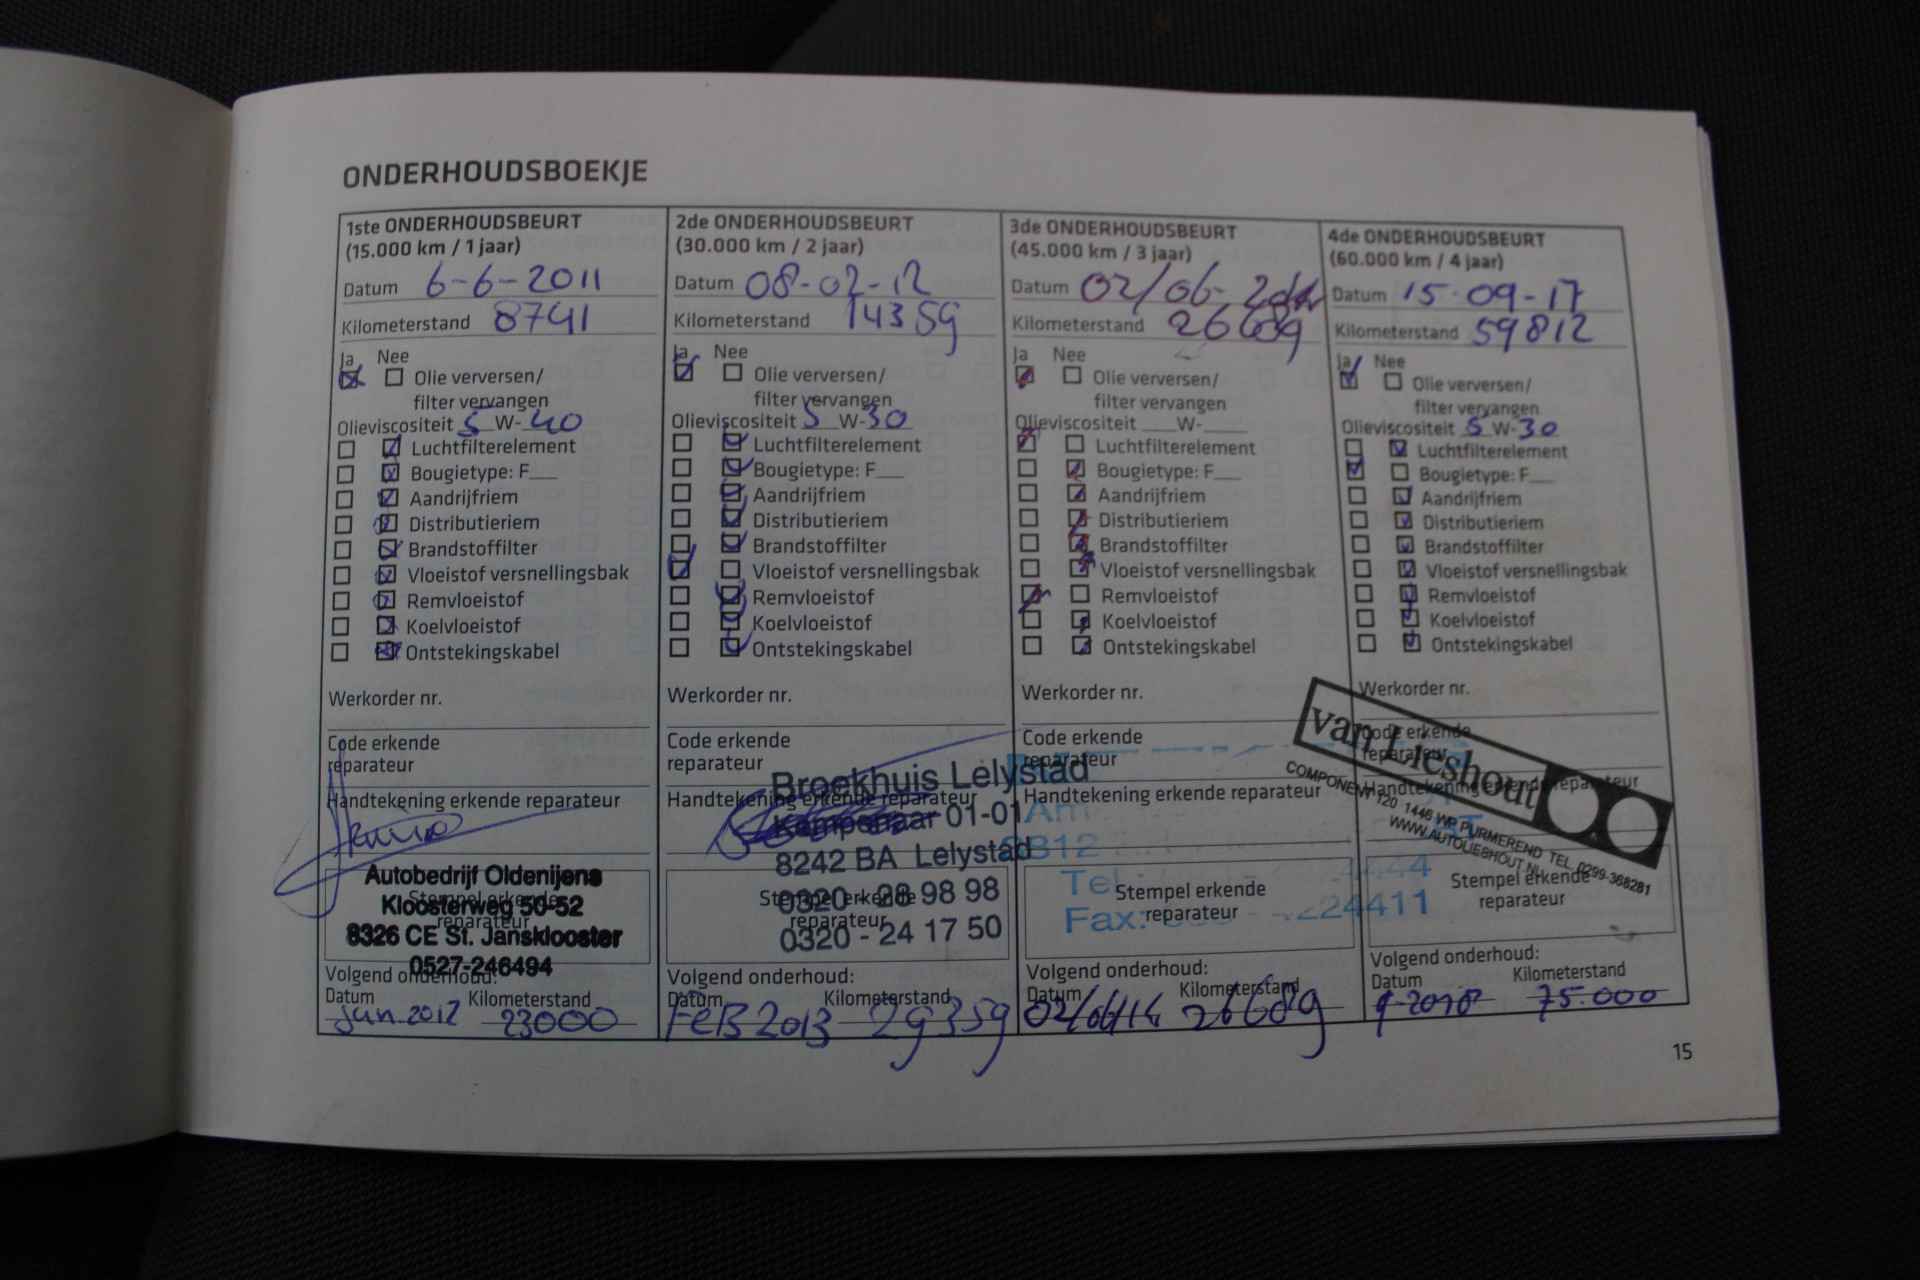 ONDERHOUDSBOEKJE
1ste ONDERHOUDSBEURT
(15.000 km / 1 jaar)
Datum 6-6-2011
Kilometerstand 8791
Ja Nee
Olie verversen/
filter vervangen
Olieviscositeit 5 W-40
Luchtfilterelement
Bougietype: F___
Aandrijfriem
Distributieriem
Brandstoffilter
Vloeistof versnellingsbak
Remvloeistof
Koelvloeistof
Ontstekingskabel
Werkorder nr.
Code erkende
reparateur
Handtekening erkende reparateur
Autobedrijf Oldenijens
Stempel erkende
Kloosterweg 50-52
reparateur
8326 CE St. Jansklooster
0527-246494
Volgend onderhoud:
Datum Kilometerstand
jan 2012 23000
2de ONDERHOUDSBEURT
(30.000 km / 2 jaar)
Datum 08-02-12
Kilometerstand 14359
Ja Nee
Olie verversen/
filter vervangen
Olieviscositeit 5 W-30
Luchtfilterelement
Bougietype: F___
Aandrijfriem
Distributieriem
Brandstoffilter
Vloeistof versnellingsbak
Remvloeistof
Koelvloeistof
Ontstekingskabel
Werkorder nr.
Code erkende
reparateur
Broekhuis Lelystad
Handtekening erkende reparateur
Kempenaar 01-01
8242 BA Lelystad
Stempel erkende
0320 - 28 98 98
reparateur
0320 - 24 17 50
Volgend onderhoud:
Datum Kilometerstand
FEB 2013 29359
3de ONDERHOUDSBEURT
(45.000 km / 3 jaar)
Datum 02/06
Kilometerstand 26689
Ja Nee
Olie verversen/
filter vervangen
Olieviscositeit ___W-____
Luchtfilterelement
Bougietype: F___
Aandrijfriem
Distributieriem
Brandstoffilter
Vloeistof versnellingsbak
Remvloeistof
Koelvloeistof
Ontstekingskabel
Werkorder nr.
Code erkende
reparateur
Handtekening erkende reparateur
Am
Tel
4444
Stempel erkende
Fax:
24411
reparateur
Volgend onderhoud:
Datum Kilometerstand
02/06/14 26689
4de ONDERHOUDSBEURT
(60.000 km / 4 jaar)
Datum 15-09-17
Kilometerstand 59812
Ja Nee
Olie verversen/
filter vervangen
Olieviscositeit 5 W-30
Luchtfilterelement
Bougietype: F___
Aandrijfriem
Distributieriem
Brandstoffilter
Vloeistof versnellingsbak
Remvloeistof
Koelvloeistof
Ontstekingskabel
Werkorder nr.
Code erkende
reparateur
van Lieshout
Handtekening erkende reparateur
COMPONENT 120 1446 WP PURMEREND TEL. 0299-368281
WWW.AUTOLIESHOUT.NL
Stempel erkende
reparateur
Volgend onderhoud:
Datum Kilometerstand
9-2018 75.000
15